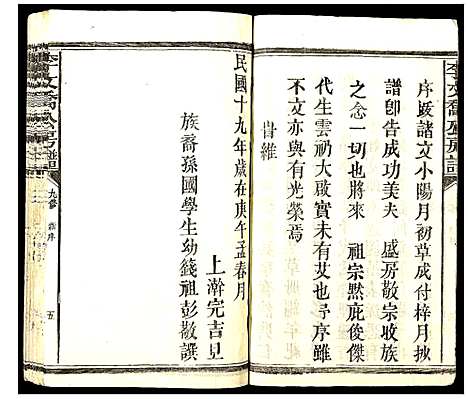 序跋諸文小陽月初草成付梓月抄
譜卽告成功美夫　盛房敬宗收族
之念一切也將來　祖宗黙庇俊傑
代生雲礽大啟實未有艾也予序雖
不文亦與有光榮焉
旹維
民國十九年歲在庚午孟春月
上澣完吉旦
族裔孫國學生幼籛祖彭敬譔
李文喬公房譜
九修
序
五